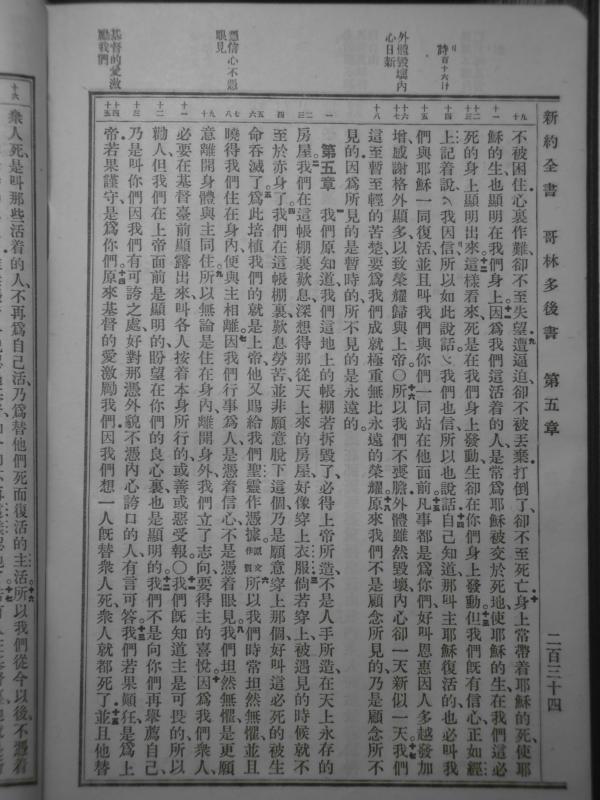 新約全書 哥林多後書 第五章 二百三十四
詩百十六
外體毀壞內
心日新
憑信心不憑
眼見
基督的愛激
勵我們
不被困住心裏作難卻不至失望遭逼迫卻不被丟棄打倒了卻不至死亡身上常帶着耶穌的死使耶
穌的生也顯明在我們身上因爲我們這活着的人是常爲耶穌被交於死地使耶穌的生在我們這必
死的身上顯明出來這樣看來死是在我們身上發動生卻在你們身上發動但我們既有信心正如經
上記着說我因信所以如此說話我們也信所以也說話自己知道那叫主耶穌復活的也必叫我
們與耶穌一同復活並且叫我們與你們一同站在他面前凡事都是爲你們好叫恩惠因人多越發加
增感謝格外顯多以致榮耀歸與上帝〇所以我們不喪膽外體雖然毀壞內心卻一天新似一天我們
這至暫至輕的苦楚要爲我們成就極重無比永遠的榮耀原來我們不是顧念所見的乃是顧念所不
見的因爲所見的是暫時的所不見的是永遠的
第五章 我們原知道我們這地上的帳棚若拆毀了必得上帝所造不是人手所造在天上永存的
房屋我們在這帳棚裏歎息深想得那從天上來的房屋好像穿上衣服倘若穿上被遇見的時候就不
至於赤身了我們在這帳棚裏歎息勞苦並非願意脫下這個乃是願意穿上那個好叫這必死的被生
命吞滅了爲此培植我們的就是上帝他又賜給我們聖靈作憑據所以我們時常坦然無懼並且
曉得我們住在身內便與主相離因我們行事爲人是憑着信心不是憑着眼見我們坦然無懼是更願
意離開身體與主同住所以無論是住在身內離開身外我們立了志向要得主的喜悅因爲我們衆人
必要在基督臺前顯露出來叫各人按着本身所行的或善或惡受報〇我們既知道主是可畏的所以
勸人但我們在上帝面前是顯明的盼望在你們的良心裏也是顯明的我們不是向你們再舉薦自己
乃是叫你們因我們有可誇之處好對那憑外貌不憑內心誇口的人有言可答我們若果顛狂是爲上
帝若果謹守是爲你們原來基督的愛激勵我們因我們想一人既替衆人死衆人就都死了並且他替
衆人死是叫那些活着的人不再爲自己活乃爲替他們死而復活的主活所以我們從今以後不憑着